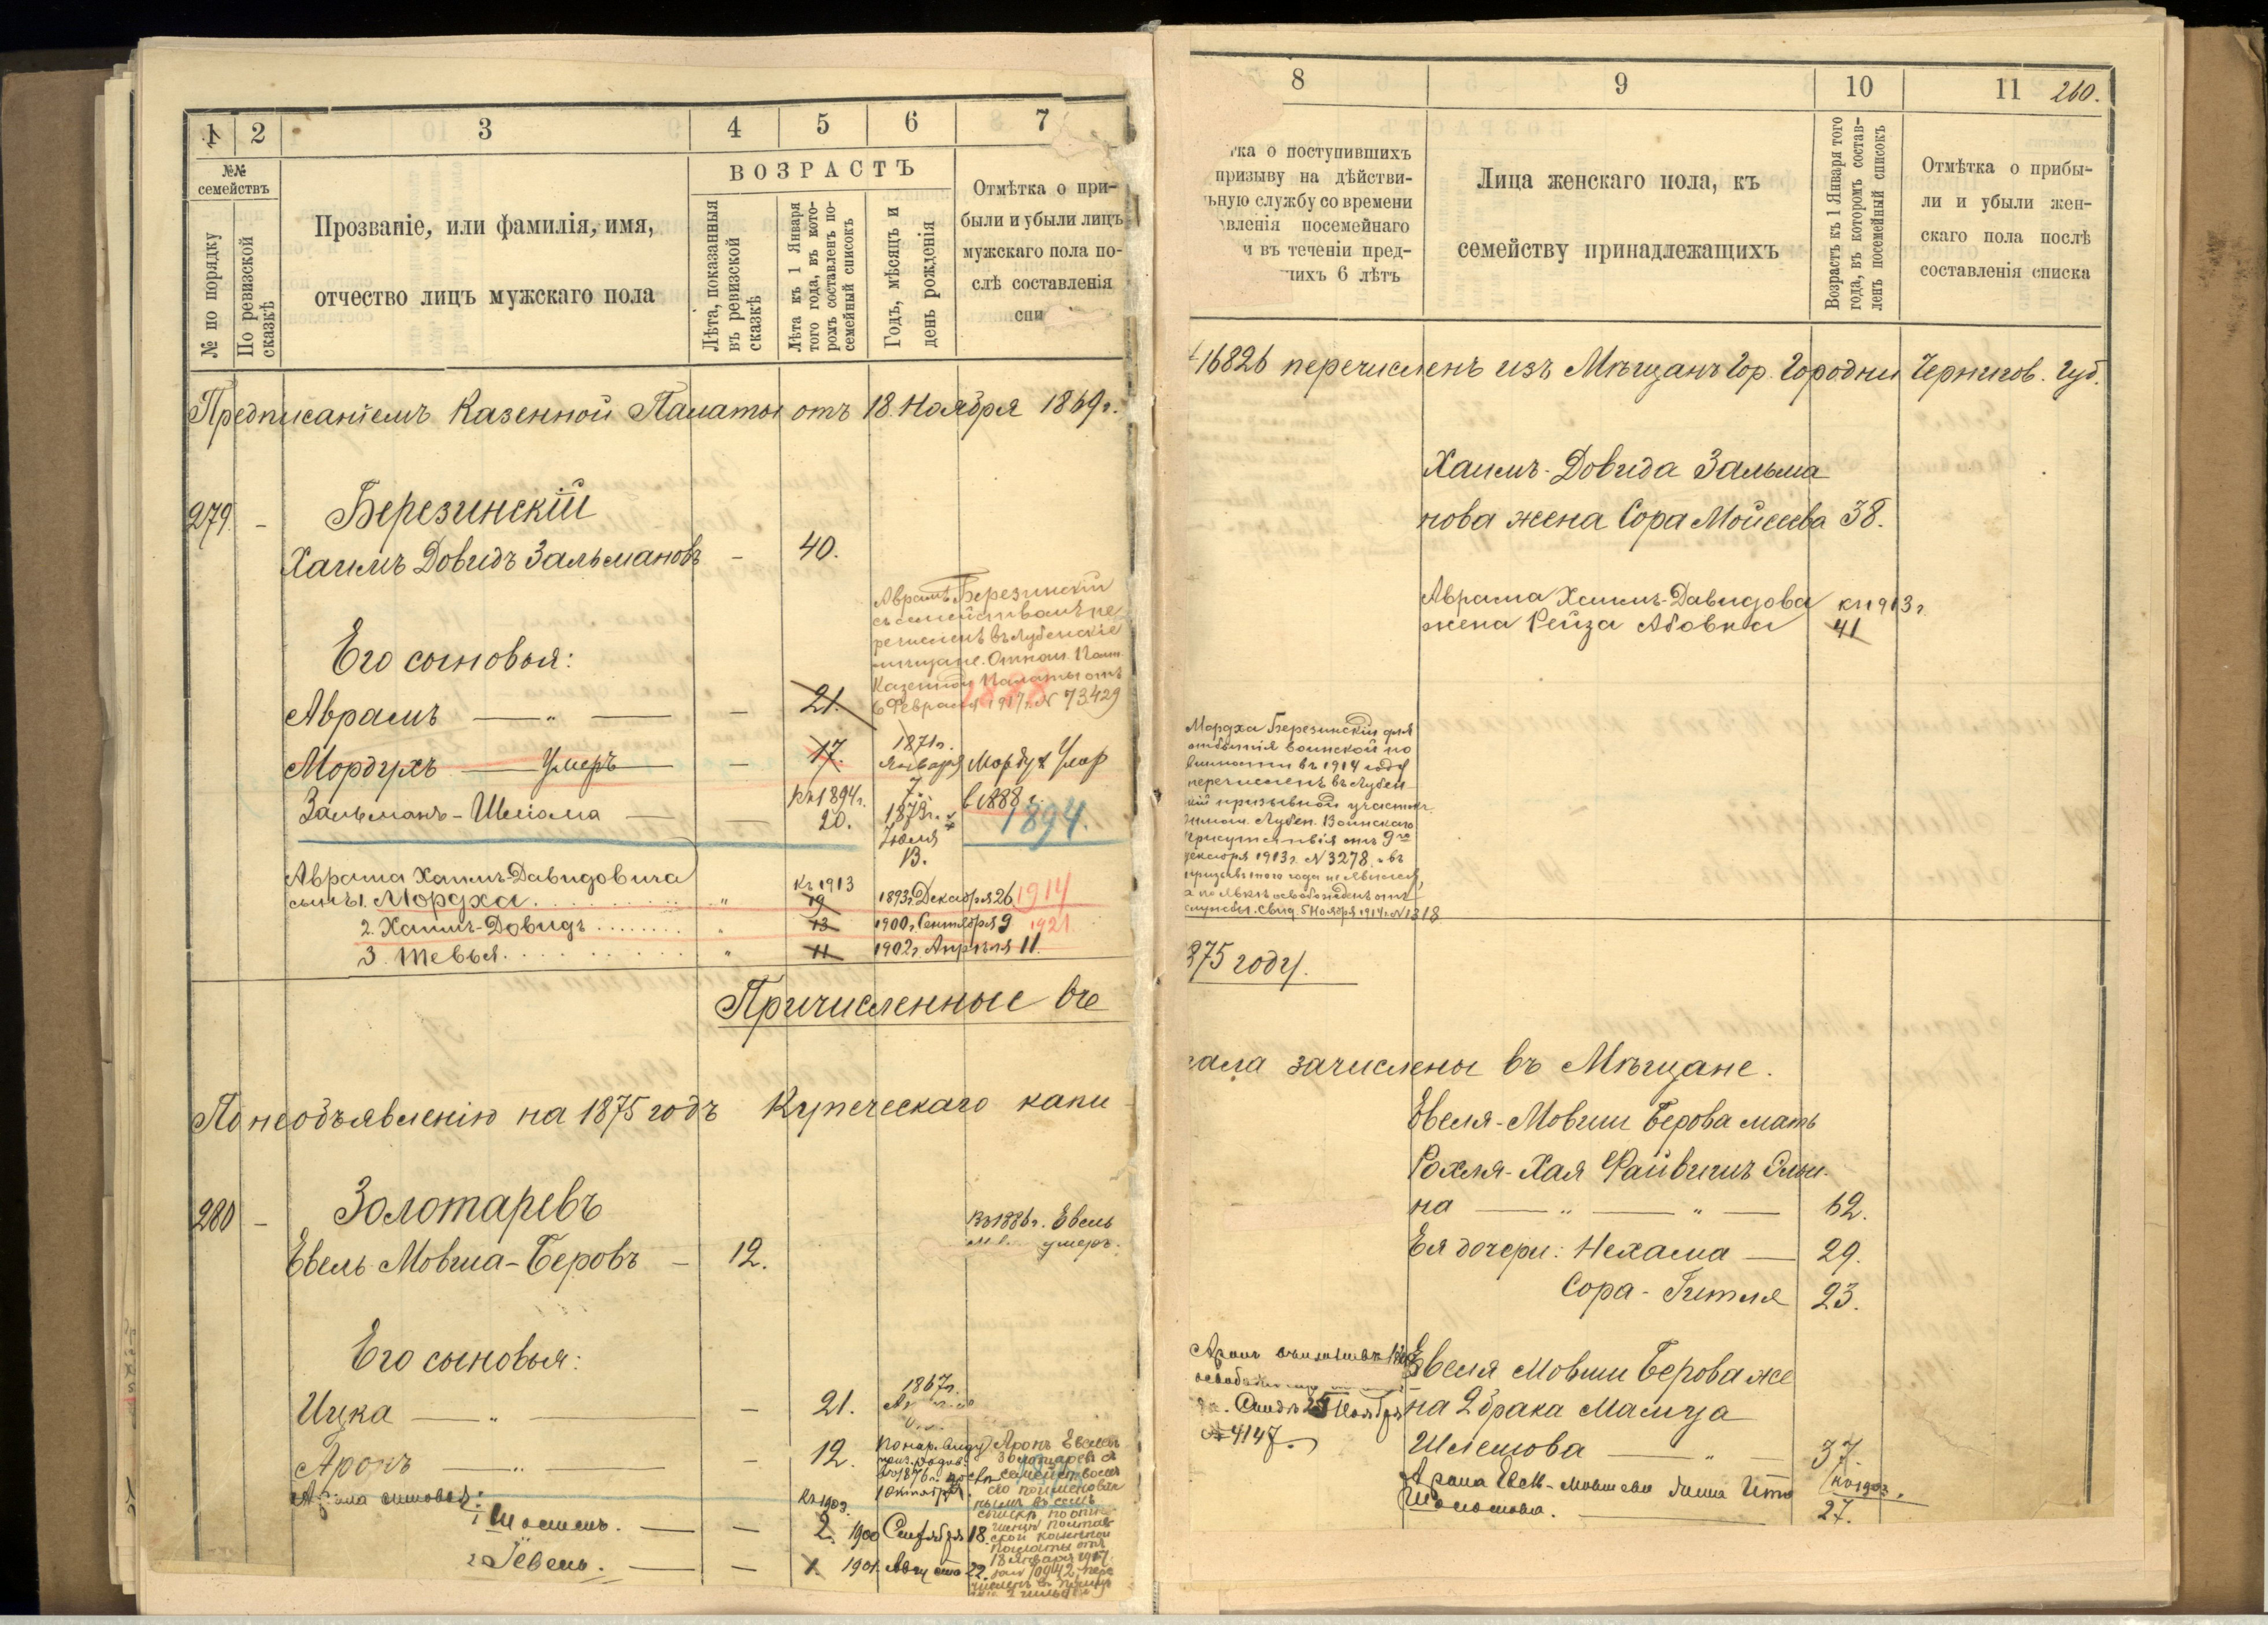 1
2
3
4
5
6
7
№№
семействъ
№ по порядку
По ревизской
сказкѣ
Прозваніе, или фамилія, имя,
отчество лицъ мужскаго пола
ВОЗРАСТЪ
Лѣта, показанныя
въ ревизской
сказкѣ
Лѣта къ 1 Января
того года, въ кото-
ромъ составленъ по-
семейный списокъ
Годъ, мѣсяцъ и
день рожденія
Отмѣтка о при-
были и убыли лицъ
мужскаго пола по-
слѣ составленія
спи
Предписаніемъ Казенной Палаты отъ 18 Ноября 1869 г.
279. -
Березинскій
Хаимъ Довидъ Зальмановъ - 40.
Аврамъ Березинскій
съ семействомъ пе
речисленъ въ Лубенскіе
мѣщане. Отнош. Полт.
Казенной Палаты отъ
6 Февраля 1917 г. N 73429
Его сыновья:
Аврамъ — „ — - 21.
1888
Мордухъ — Умеръ — - 17.
1871 г.
Января
7.
Мордух Умер
в 1888 г.
Зальманъ-Шліома — —
Къ 1894 г.
20.
1873 г.
Іюля
13.
1894.
Аврама Хаимъ-Давидовича
сынъ 1. Мордха . . . „
Къ 1913
19
1893 г. Декабря 26
1914
2. Хаимъ-Довидъ . . . „ 13 1900 г. Сентября 9 1921
3. Тевья . . . „ 11 1902 г. Апрѣля 11.
Причисленные въ
По необъявленію на 1875 годъ Купеческаго капи
280 -
Золотаревъ
Евель Мовша-Беровъ - 12.
Въ 1886 г. Евель
умеръ.
Его сыновья:
Ицка — „ — - 21.
1867 г.
Аронъ — „ — - 12.
1 Октября.
Аронъ Евелев
Золотаревъ
съ семействомъ
Арона сыновья:
Къ 1903.
1 Шоломъ. — — 2. 1900 Сентября 18.
2 Гевель. — — 1. 1901 Августа 22.
скои казенной
палаты отъ
18 Января 1917
8
9
10
11
260.
тка о поступившихъ
призыву на дѣйстви-
ьную службу со времени
вленія посемейнаго
и въ теченіи пред-
ихъ 6 лѣтъ
Лица женскаго пола, къ
семейству принадлежащихъ
Возрастъ къ 1 Января того
года, въ которомъ состав-
ленъ посемейный списокъ
Отмѣтка о прибы-
ли и убыли жен-
скаго пола послѣ
составленія списка
16826 перечисленъ изъ Мѣщанъ Гор. Городни Чернигов. Губ.
Хаимъ-Довида Зальма
нова жена Сора Мойсеева 38.
Аврама Хаимъ-Давидова
жена Рейза Абовна
къ 1913 г.
41
Мордха Березинскій для
отбытія воинской по
винности въ 1914 году
перечисленъ въ Лубен
кій призывной участокъ
Отнош. Лубен. Воинскаго
Присутствія отъ 9го
декабря 1913 г. N 3278, въ
призывъ того года не явился,
а по явкѣ освобожденъ отъ
службы. Свид. 5 Ноября 1914 г. N 1318
875 году.
тала зачислены въ Мѣщане.
Евеля-Мовши Берова мать
Рохля-Хая Файвишъ Эльи-
на — „ — „ — 62.
Ея дочери: Нехама — 29.
Сора-Гитля 23.
Евеля Мовши Берова же
на 2 брака Мамця
Шлемова — „ 37.
Свид. 25 Ноября
№ 4147.
Арона Евель-Мовшева жена Ита
Шоломова. — 27.
Къ 1903.